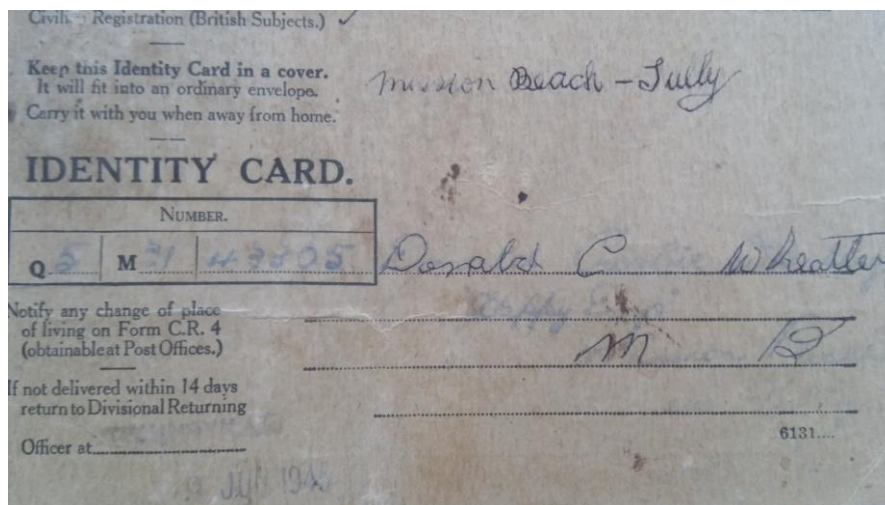 Registration (British Subjects.) ✓
Keep this Identity Card in a cover.
It will fit into an ordinary envelope.
Carry it with you when away from home.
Mission Beach - Tully
IDENTITY CARD.
NUMBER.
Q 5 M 31 43305
Donald C Wheatley
Notify any change of place
of living on Form C.R. 4
(obtainable at Post Offices.)
M B
If not delivered within 14 days
return to Divisional Returning
Officer at
6131....